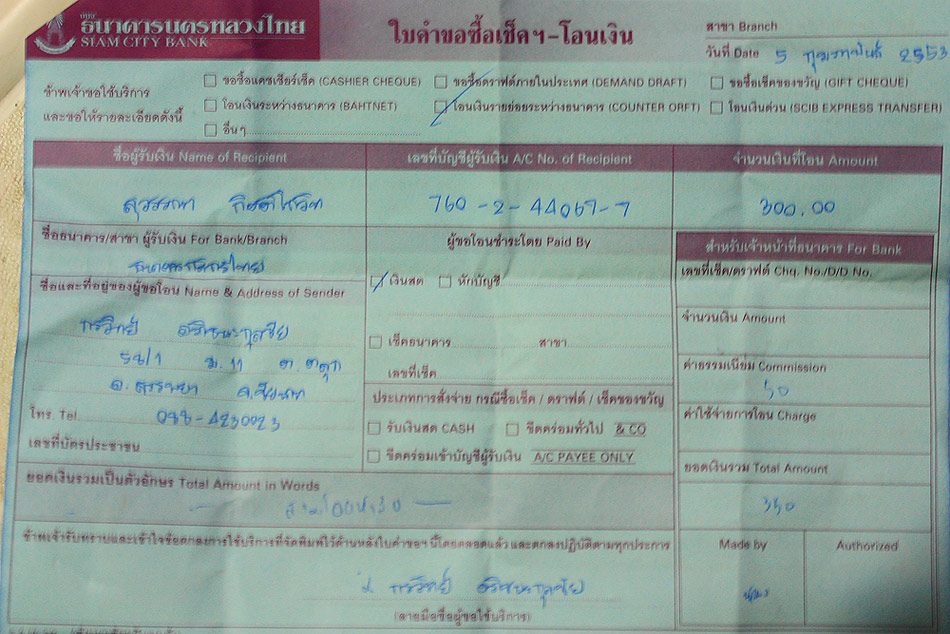 ธนาคารนครหลวงไทย
SIAM CITY BANK
ใบคำขอซื้อเช็คฯ-โอนเงิน
สาขา Branch
วันที่ Date 5 กุมภาพันธ์ 2553
ข้าพเจ้าขอใช้บริการ
และขอให้รายละเอียดดังนี้
ขอซื้อแคชเชียร์เช็ค (CASHIER CHEQUE)
ขอซื้อดราฟต์ภายในประเทศ (DEMAND DRAFT)
ขอซื้อเช็คของขวัญ (GIFT CHEQUE)
โอนเงินระหว่างธนาคาร (BAHTNET)
โอนเงินรายย่อยระหว่างธนาคาร (COUNTER ORFT)
โอนเงินด่วน (SCIB EXPRESS TRANSFER)
อื่นๆ
ชื่อผู้รับเงิน Name of Recipient
เลขที่บัญชีผู้รับเงิน A/C No. of Recipient
จำนวนเงินที่โอน Amount
760-2-44067-7
300.00
ชื่อธนาคาร/สาขา ผู้รับเงิน For Bank/Branch
ผู้ขอโอนชำระโดย Paid By
สำหรับเจ้าหน้าที่ธนาคาร For Bank
ธนาคารกสิกรไทย
เงินสด
หักบัญชี
เลขที่เช็ค/ดราฟต์ Chq. No./D/D No.
ชื่อและที่อยู่ของผู้ขอโอน Name & Address of Sender
จำนวนเงิน Amount
58/1 ม.11
เช็คธนาคาร
สาขา
ค่าธรรมเนียม Commission
50
อ. สรรพยา จ.ชัยนาท
เลขที่เช็ค
ประเภทการสั่งจ่าย กรณีซื้อเช็ค / ดราฟต์ / เช็คของขวัญ
ค่าใช้จ่ายการโอน Charge
โทร. Tel. 088-4230023
รับเงินสด CASH
ขีดคร่อมทั่วไป & CO
เลขที่บัตรประชาชน
ขีดคร่อมเข้าบัญชีผู้รับเงิน A/C PAYEE ONLY
ยอดเงินรวม Total Amount
350
ยอดเงินรวมเป็นตัวอักษร Total Amount in Words
ข้าพเจ้ารับทราบและเข้าใจข้อตกลงการใช้บริการที่จัดพิมพ์ไว้ด้านหลังใบคำขอฯ นี้โดยตลอดแล้ว และตกลงปฏิบัติตามทุกประการ
Made by
Authorized
(ลายมือชื่อผู้ขอใช้บริการ)